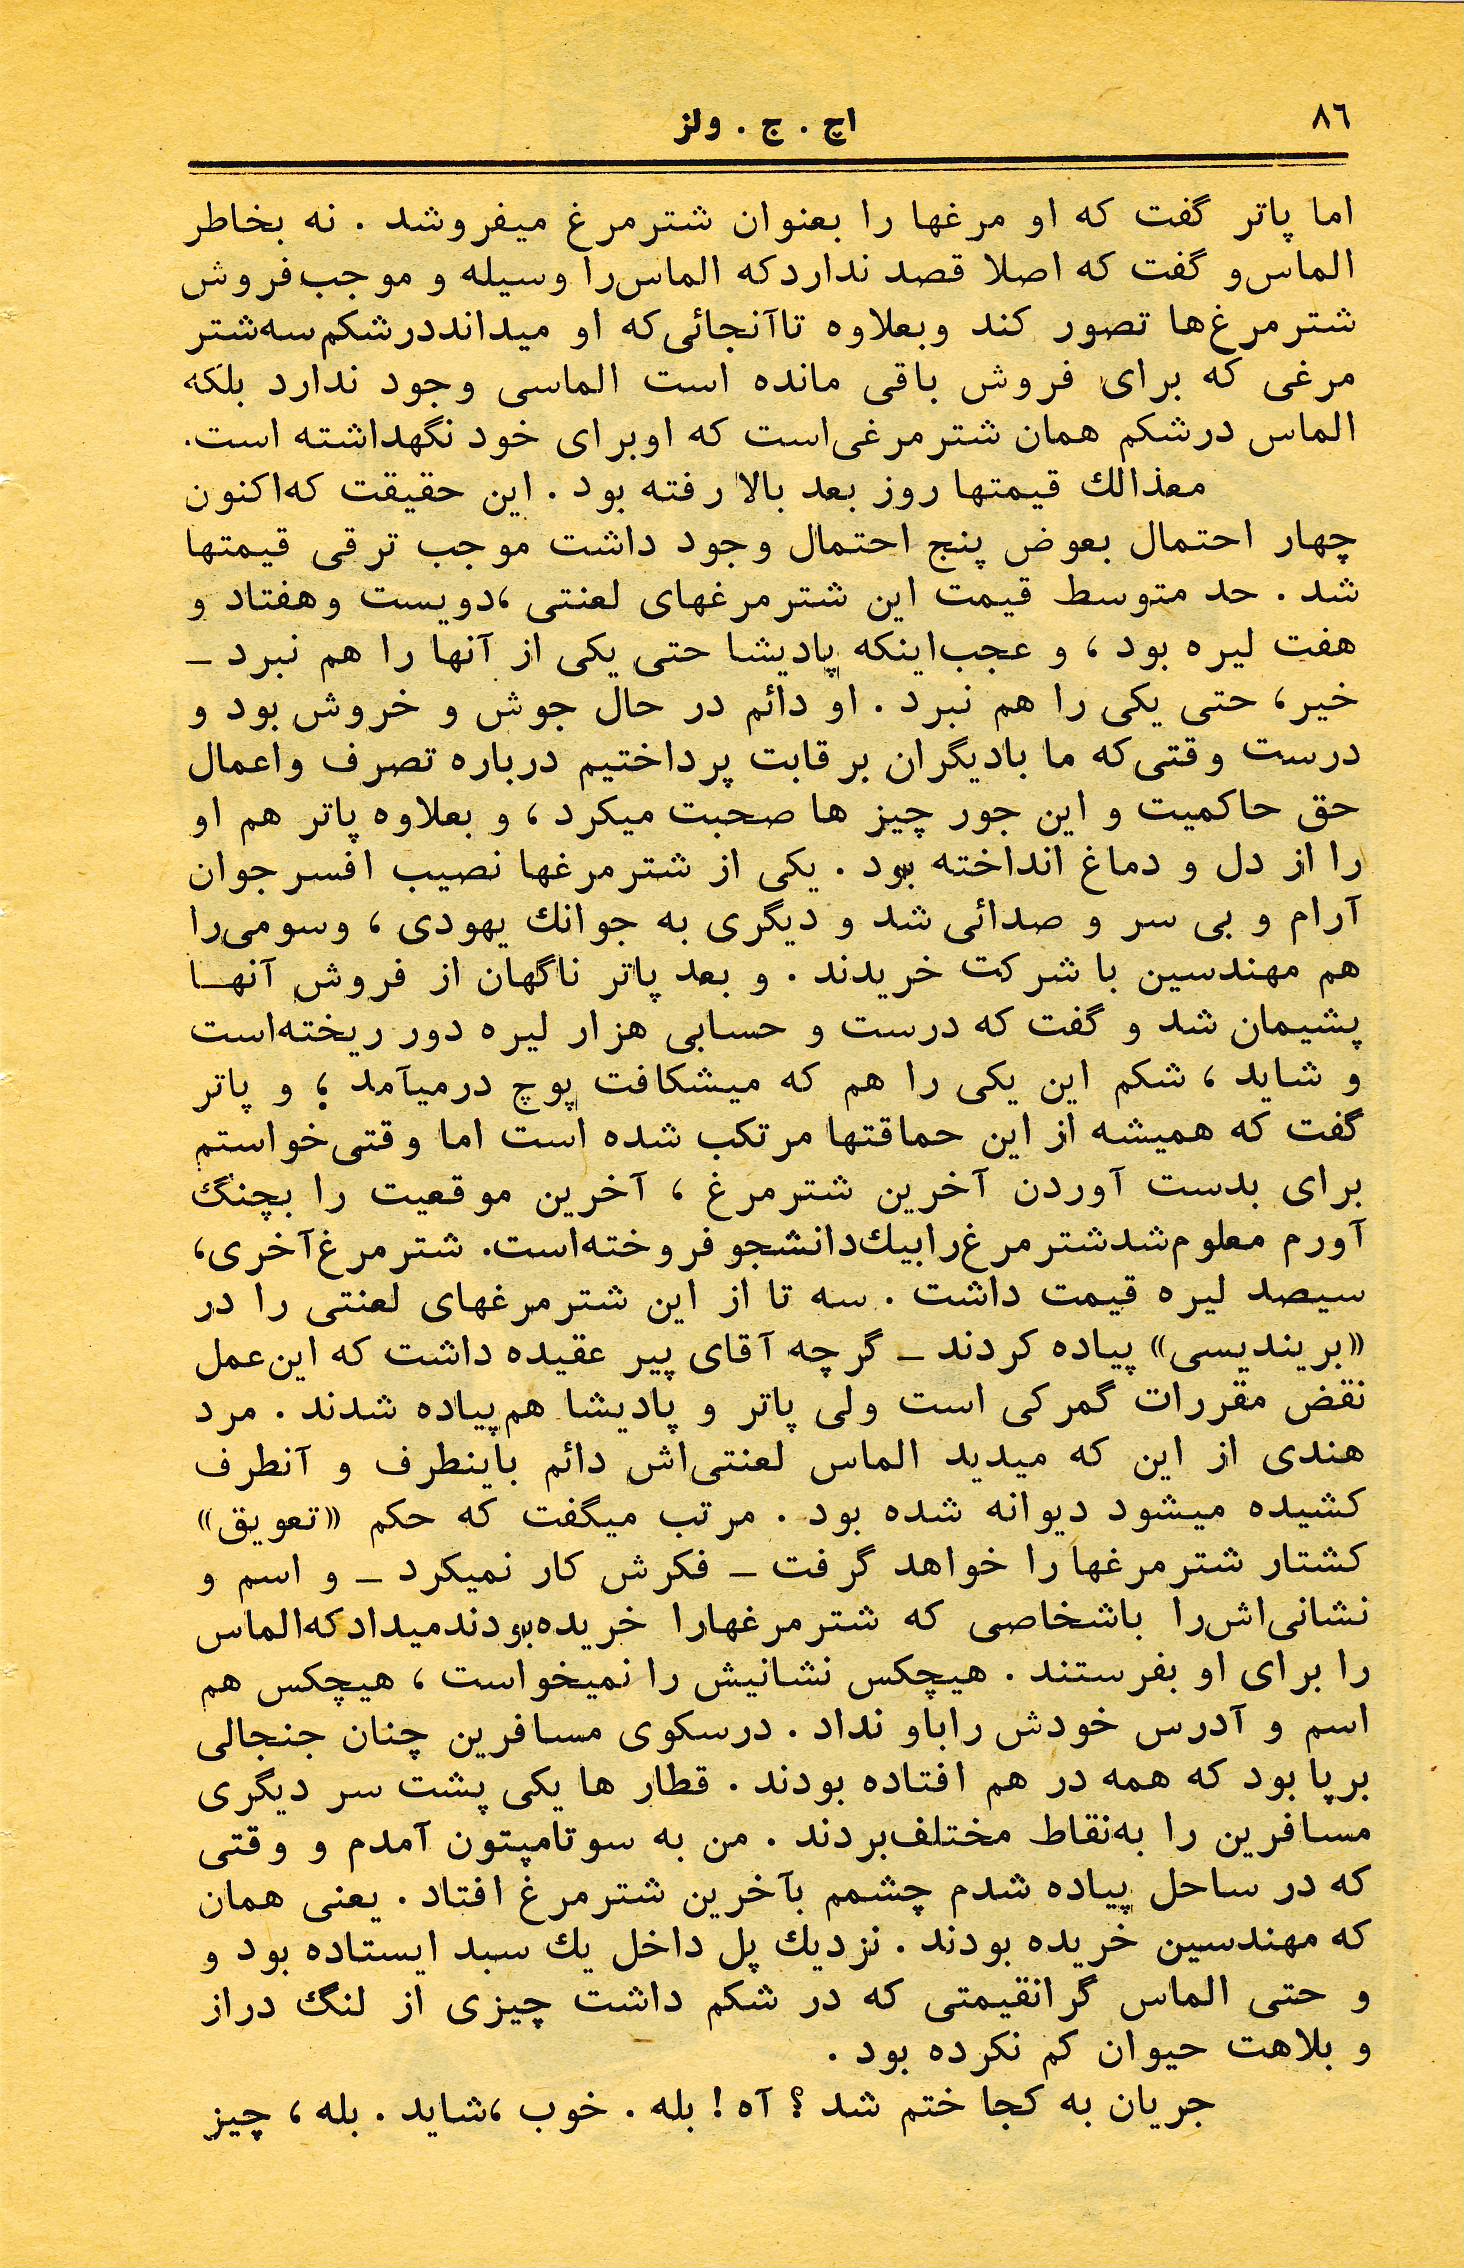 ٨٦
اچ . ج . ولز
اما پاتر گفت که او مرغها را بعنوان شترمرغ میفروشد . نه بخاطر
الماس و گفت که اصلا قصد ندارد که الماس را وسیله و موجب فروش
شترمرغ‌ها تصور کند وبعلاوه تاآنجائی که او میداند درشکم سه شتر
مرغی که برای فروش باقی مانده است الماسی وجود ندارد بلکه
الماس درشکم همان شترمرغی است که اوبرای خود نگهداشته است.
معذالك قیمتها روز بعد بالا رفته بود . این حقیقت که اکنون
چهار احتمال بعوض پنج احتمال وجود داشت موجب ترقی قیمتها
شد . حد متوسط قیمت این شترمرغهای لعنتی ،دویست وهفتاد و
هفت لیره بود ، و عجب اینکه پادیشا حتی یکی از آنها را هم نبرد ـ
خیر، حتی یکی را هم نبرد . او دائم در حال جوش و خروش بود و
درست وقتی که ما بادیگران برقابت پرداختیم درباره تصرف واعمال
حق حاکمیت و این جور چیز ها صحبت میکرد ، و بعلاوه پاتر هم او
را از دل و دماغ انداخته بود . یکی از شترمرغها نصیب افسر جوان
آرام و بی سر و صدائی شد و دیگری به جوانك یهودی ، وسومی را
هم مهندسین با شرکت خریدند . و بعد پاتر ناگهان از فروش آنهـا
پشیمان شد و گفت که درست و حسابی هزار لیره دور ریخته است
و شاید ، شکم این یکی را هم که میشکافت پوچ درمیآمد ؛ و پاتر
گفت که همیشه از این حماقتها مرتکب شده است اما وقتی خواستم
برای بدست آوردن آخرین شترمرغ ، آخرین موقعیت را بچنگ
آورم معلوم شد شترمرغ را بیك دانشجو فروخته است. شترمرغ آخری،
سیصد لیره قیمت داشت . سه تا از این شترمرغهای لعنتی را در
«بریندیسی» پیاده کردند ـ گرچه آقای پیر عقیده داشت که این عمل
نقض مقررات گمرکی است ولی پاتر و پادیشا هم پیاده شدند . مرد
هندی از این که میدید الماس لعنتی‌اش دائم باینطرف و آنطرف
کشیده میشود دیوانه شده بود . مرتب میگفت که حکم «تعویق»
کشتار شترمرغها را خواهد گرفت ـ فکرش کار نمیکرد ـ و اسم و
نشانی‌اش را باشخاصی که شترمرغهارا خریده بودند میداد که الماس
را برای او بفرستند . هیچکس نشانیش را نمیخواست ، هیچکس هم
اسم و آدرس خودش راباو نداد . درسکوی مسافرین چنان جنجالی
برپا بود که همه در هم افتاده بودند . قطار ها یکی پشت سر دیگری
مسافرین را به نقاط مختلف بردند . من به سوتامپتون آمدم و وقتی
که در ساحل پیاده شدم چشمم بآخرین شترمرغ افتاد . یعنی همان
که مهندسین خریده بودند . نزدیك پل داخل یك سبد ایستاده بود و
و حتی الماس گرانقیمتی که در شکم داشت چیزی از لنگ دراز
و بلاهت حیوان کم نکرده بود .
جریان به کجا ختم شد ؟ آه ! بله . خوب ،شاید . بله ، چیز